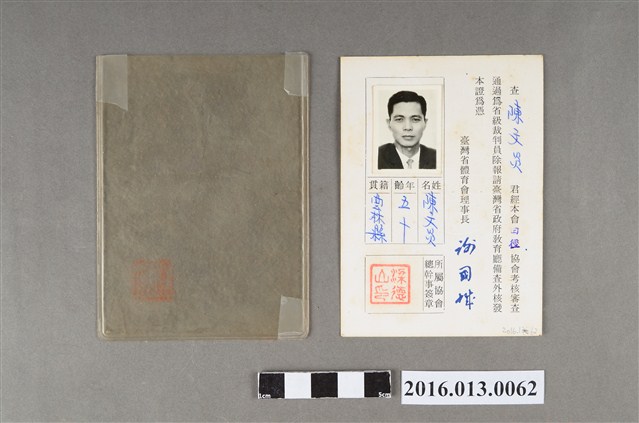 查 陳文炎 君經本會田徑協會考核審查
通過為省級裁判員除報請臺灣省政府教育廳備查外核發
本證為憑
臺灣省體育會理事長
姓名 陳文炎
年齡 五十
籍貫 雲林縣
所屬協會
總幹事簽章
1cm
5cm
2016.013.0062